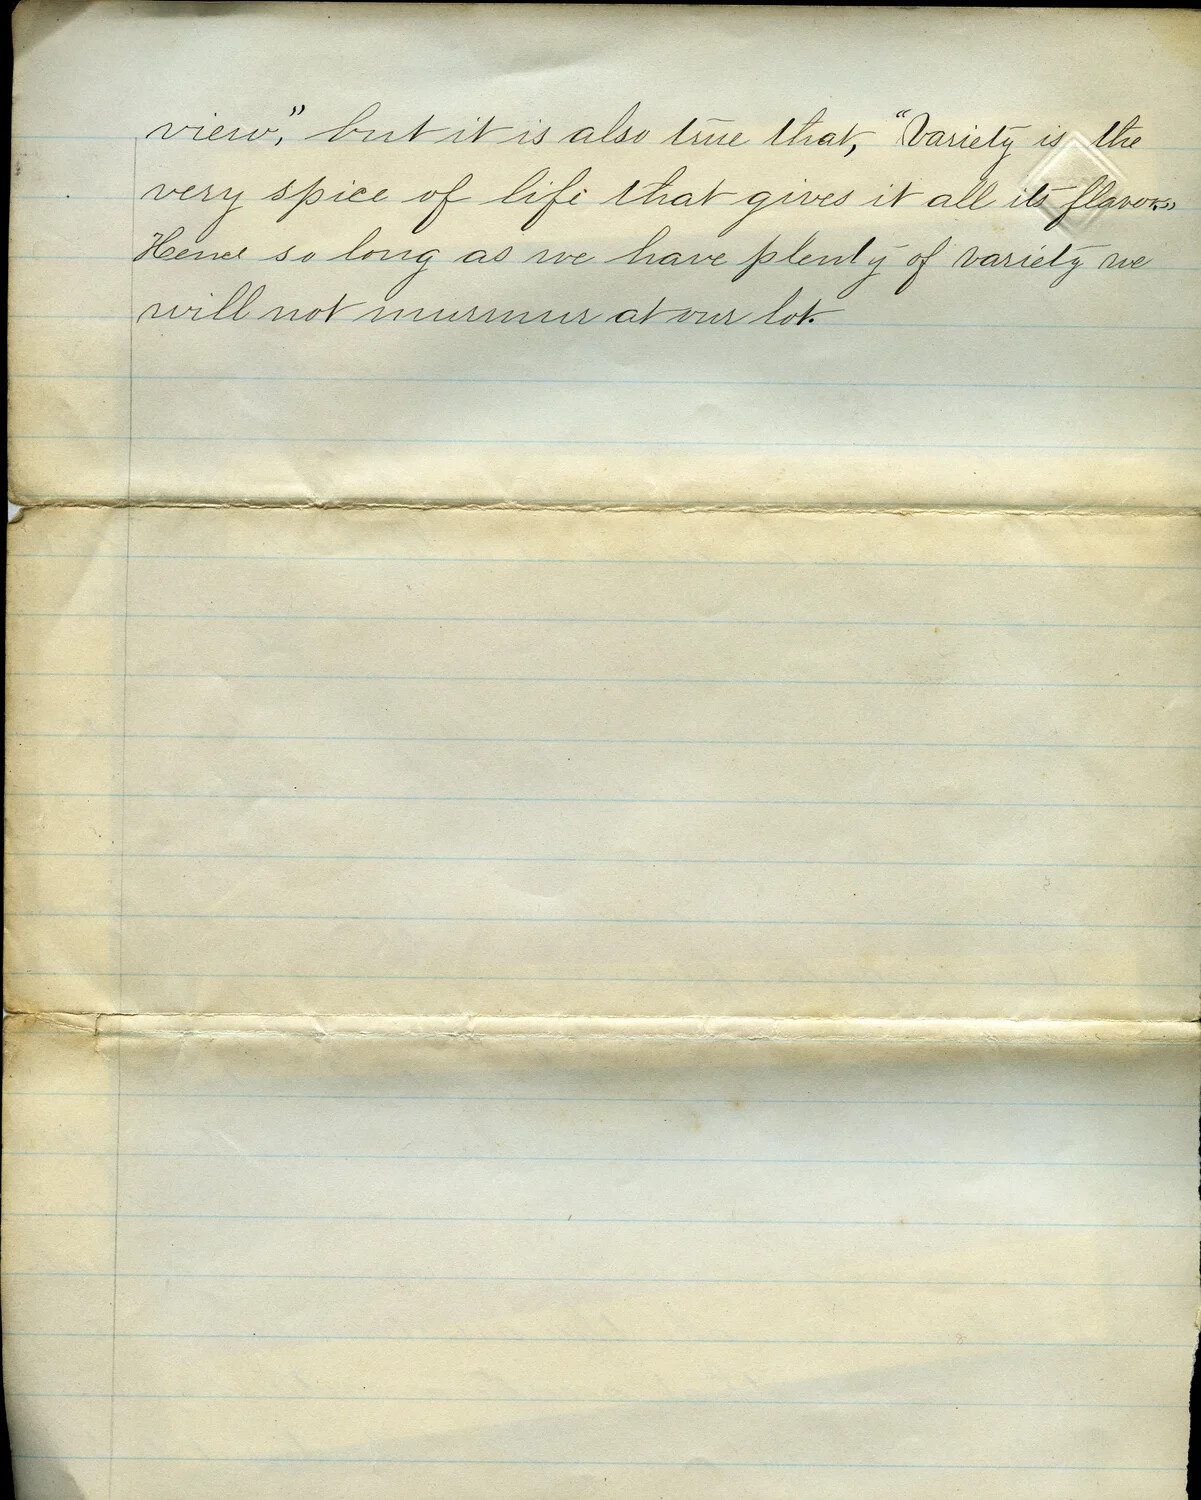 view," but it is also true that, "Variety is the
very spice of life that gives it all its flavor."
Hence so long as we have plenty of variety we
will not murmur at our lot.